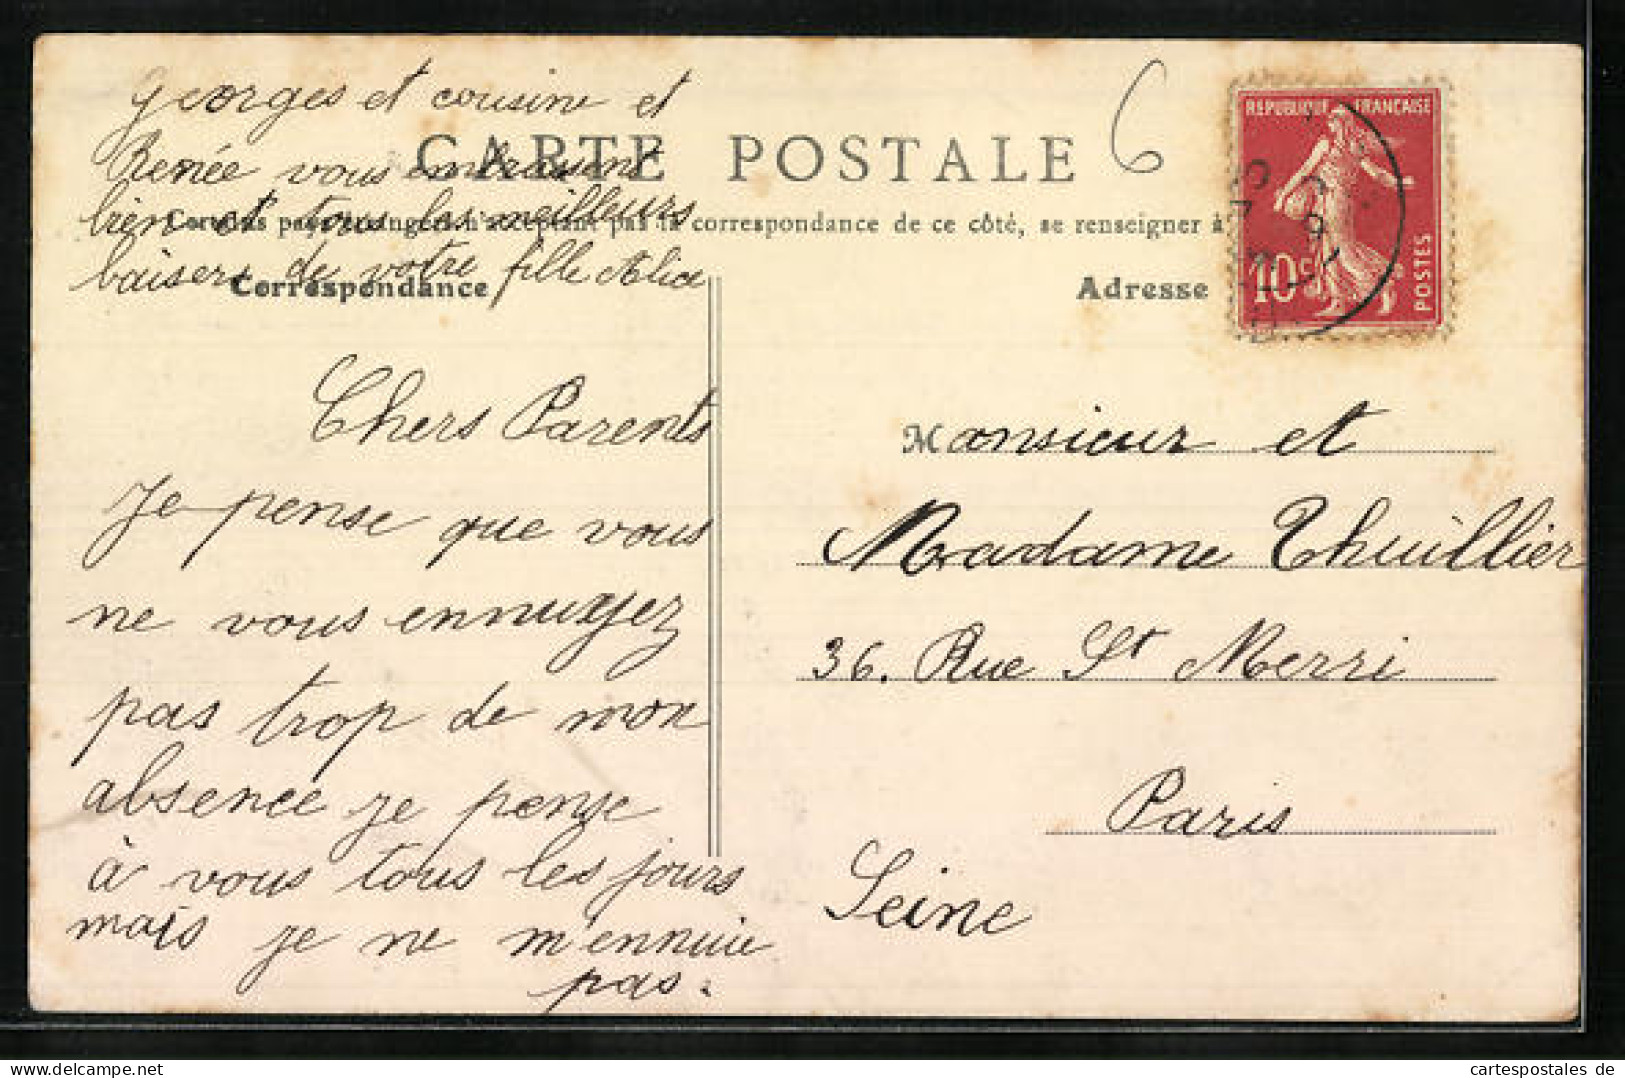 Georges et cousine et
Renée vous embrassent
bien et tous les meilleurs
baisers de votre fille Alice
CARTE POSTALE
pays étrangers n'acceptent pas la correspondance de ce côté, se renseigner à
Correspondance
Adresse
REPUBLIQUE FRANÇAISE
10c
POSTES
6
Chers Parents
Je pense que vous
ne vous ennuyez
pas trop de mon
absence je pense
à vous tous les jours
mais je ne m'ennuie
pas.
Monsieur et
Madame Thuillier
36. Rue St Merri
Paris
Seine
cartespostales de